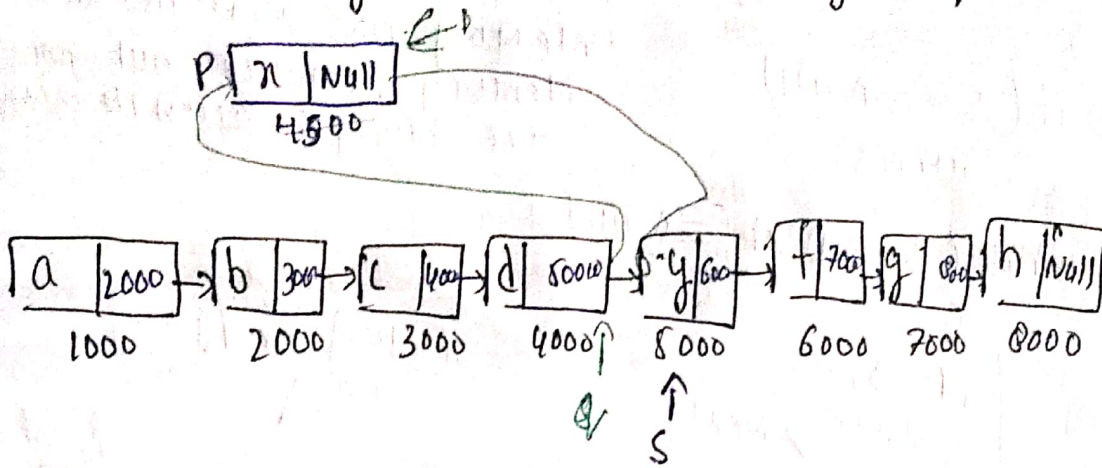 P x Null
4500
a 2000 b 3000 c 400 d 5000 y 600 f 700 g 800 h Null
1000 2000 3000 4000 5000 6000 7000 8000
q
S